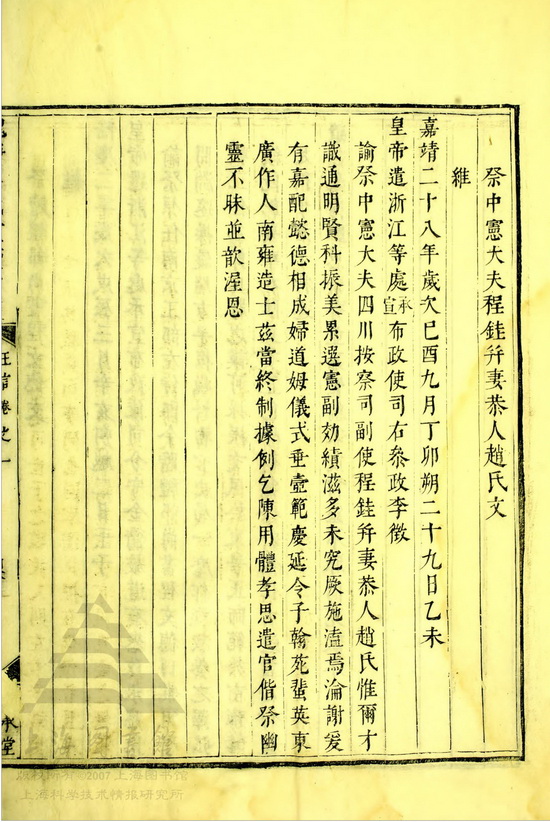 祭中憲大夫程銈并妻恭人趙氏文
維
嘉靖二十八年歲次巳酉九月丁卯朔二十九日乙未
皇帝遣浙江等處承宣布政使司右叅政李徵
諭祭中憲大夫四川按察司副使程銈并妻恭人趙氏惟爾才
識通明賢科振美累遷憲副効績滋多未究厥施溘焉淪謝爰
有嘉配懿德相成婦道姆儀式垂壼範慶延令子翰苑蜚英東
廣作人南雍造士茲當終制據例乞陳用體孝思遣官偕祭幽
靈不昧並歆渥恩
卷之一
版权所有©2007上海图书馆
上海科学技术情报研究所